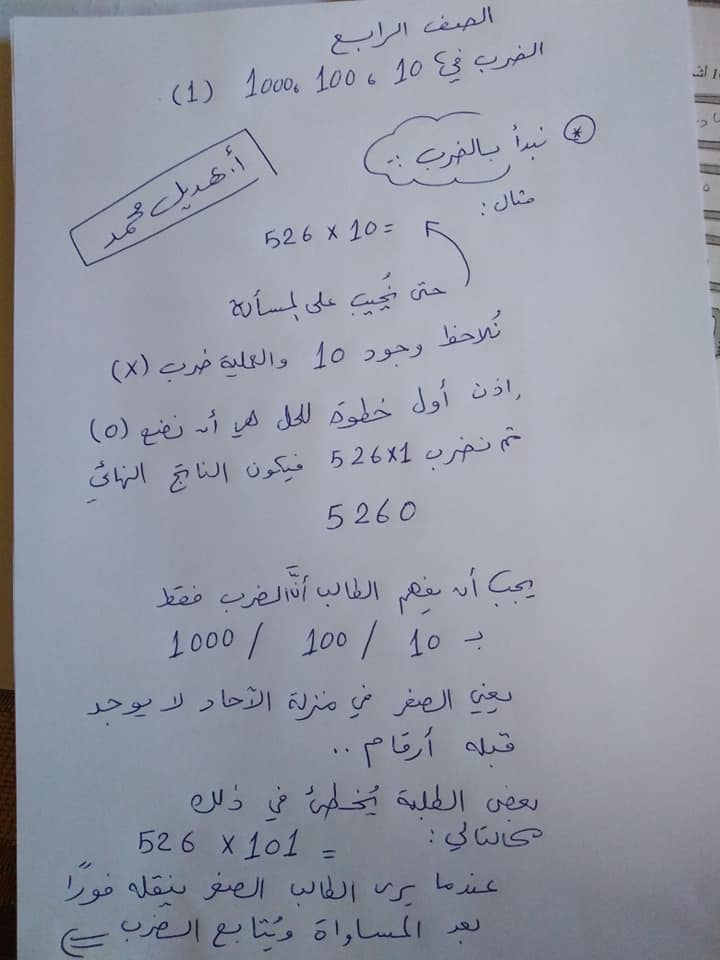 الصف الرابع
الضرب في 10 ، 100 ، 1000 (1)
* نبدأ بالضرب :
أ. هديل محمد
مثال :
526 x 10 =
حتى نُجيب على المسألة
نُلاحظ وجود 10 والعملية ضرب (x)
إذن أول خطوة للحل هي أن نضع (0)
ثم نضرب 526x1 فيكون الناتج النهائي
5260
يجب أن يفهم الطالب أنَّ الضرب فقط
بـ 10 / 100 / 1000
يعني الصفر في منزلة الآحاد لا يوجد
قبله أرقام ..
بعض الطلبة يُخطئ في ذلك
كالتالي :
526 x 101 =
عندما يرى الطالب الصفر ينقله فورًا
بعد المساواة ويُتابع الضرب